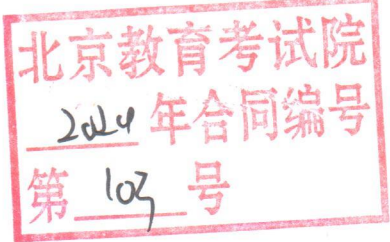 北京教育考试院
2024年合同编号
第103号